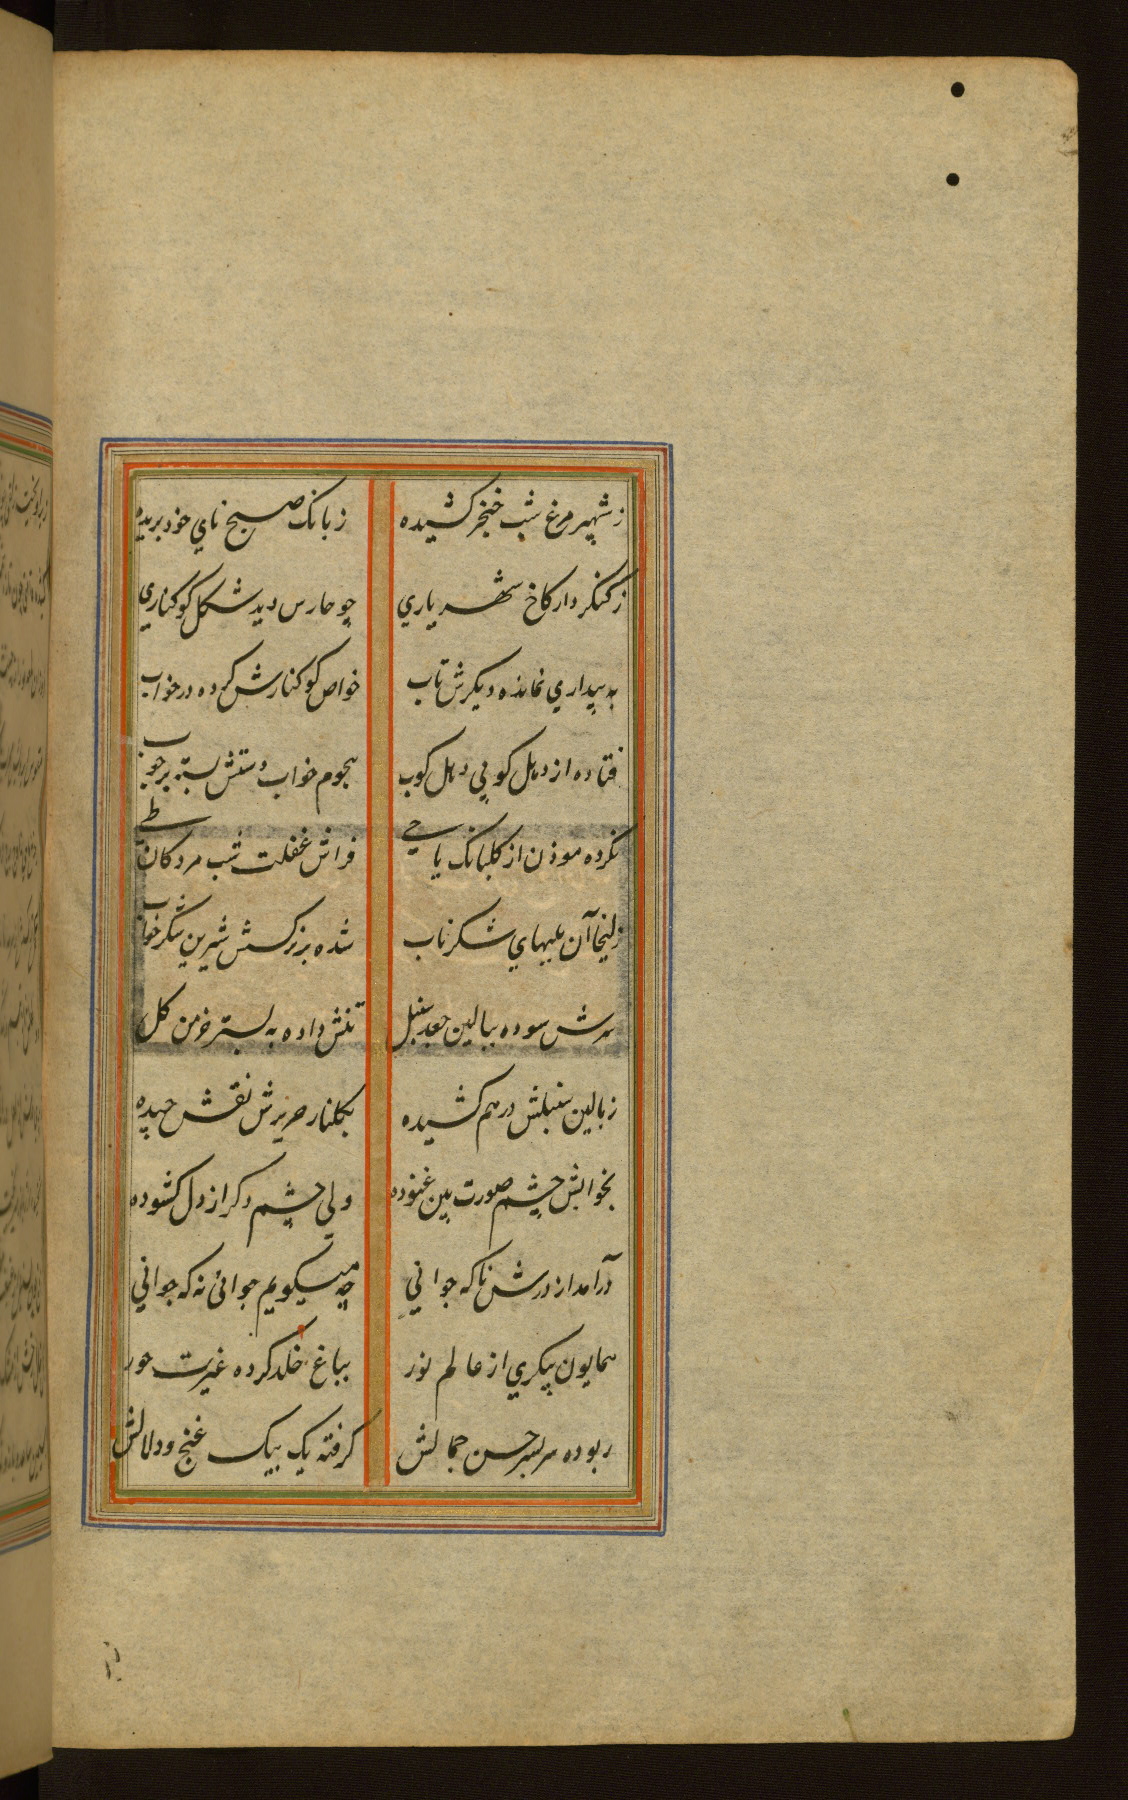 ز شهپر مرغ شب خنجر کشیده
ز بانک صبح نای خود بریده
ز کنکر دار کاخ شهریاری
چو حارس دید شکل کوکناری
به بیداری نمانده دیکرش تاب
خواص کوکنارش کرده در خواب
فتاده از دهل کوبی دهل کوب
هجوم خواب دستش بسته بر چوب
نکرده موذن از کلبانک یا حی
فراش غفلت شب مردکان طی
زلیخا آن بلبهای شکر ناب
شده بر نرکسش شیرین شکر خواب
سرش سوده ببالین جعد سنبل
تنش داده به بستر خرمن کل
ز بالین سنبلش در هم کشیده
بکلنار حریرش نقش چیده
بخوابش چشم صورت بین غنوده
ولی چشم دکر از دل کشوده
درآمد از درش ناکه جوانی
چه میکویم جوانی نه که جوانی
همایون پیکری از عالم نور
بباغ خلد کرده غیرت حور
ربوده سر بسر حسن جمالش
کرفته یک بیک غنج و دلالش